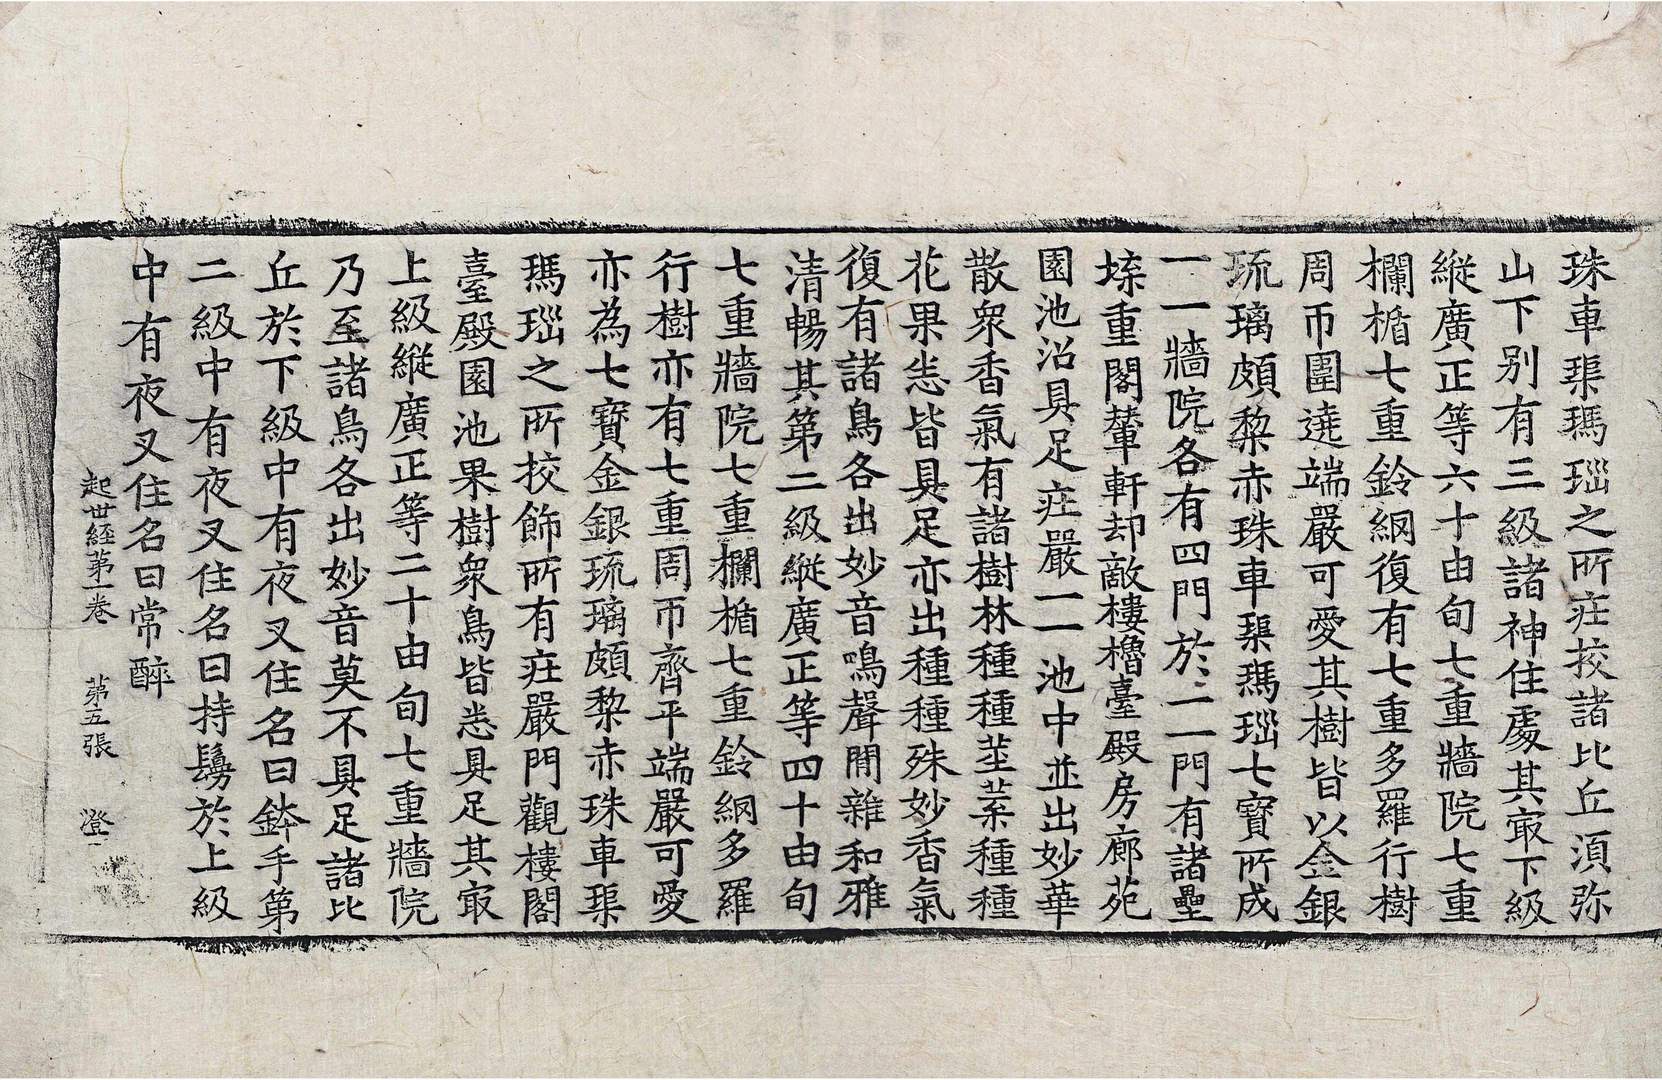 珠車璖瑪瑙之所莊挍諸比丘湏弥
山下别有三級諸神住處其㝡下級
縱廣正等六十由旬七重牆院七重
欄楯七重鈴網復有七重多羅行樹
周帀圍遶端嚴可愛其樹皆以金銀
琉璃頗黎赤珠車璖瑪瑙七寶所成
一一牆院各有四門於一一門有諸壘
垜重閣輦軒却敵樓櫓臺殿房廊苑
園池沼具足莊嚴一一池中並出妙華
散衆香氣有諸樹林種種莖葉種種
花果悉皆具足亦出種種殊妙香氣
復有諸鳥各出妙音鳴聲閒雜和雅
清暢其第二級縱廣正等四十由旬
七重牆院七重欄楯七重鈴網多羅
行樹亦有七重周帀齊平端嚴可愛
亦為七寶金銀琉璃頗黎赤珠車璖
瑪瑙之所挍飾所有莊嚴門觀樓閣
臺殿園池果樹衆鳥皆悉具足其㝡
上級縱廣正等二十由旬七重牆院
乃至諸鳥各出妙音莫不具足諸比
丘於下級中有夜叉住名曰鉢手第
二級中有夜叉住名曰持鬘於上級
中有夜叉住名曰常醉
起世經第一卷 第五張 澄